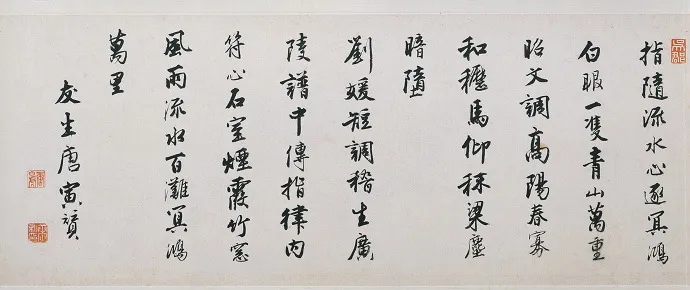 指隨流水心逐冥鴻
白眼一隻青山萬重
昭文調高陽春寡
和櫪馬仰秣梁塵
暗墮
劉媛短調稽生廣
陵譜中傳指律內
符心石室煙霞竹窓
風雨流水百灘冥鴻
萬里
友生唐寅贊